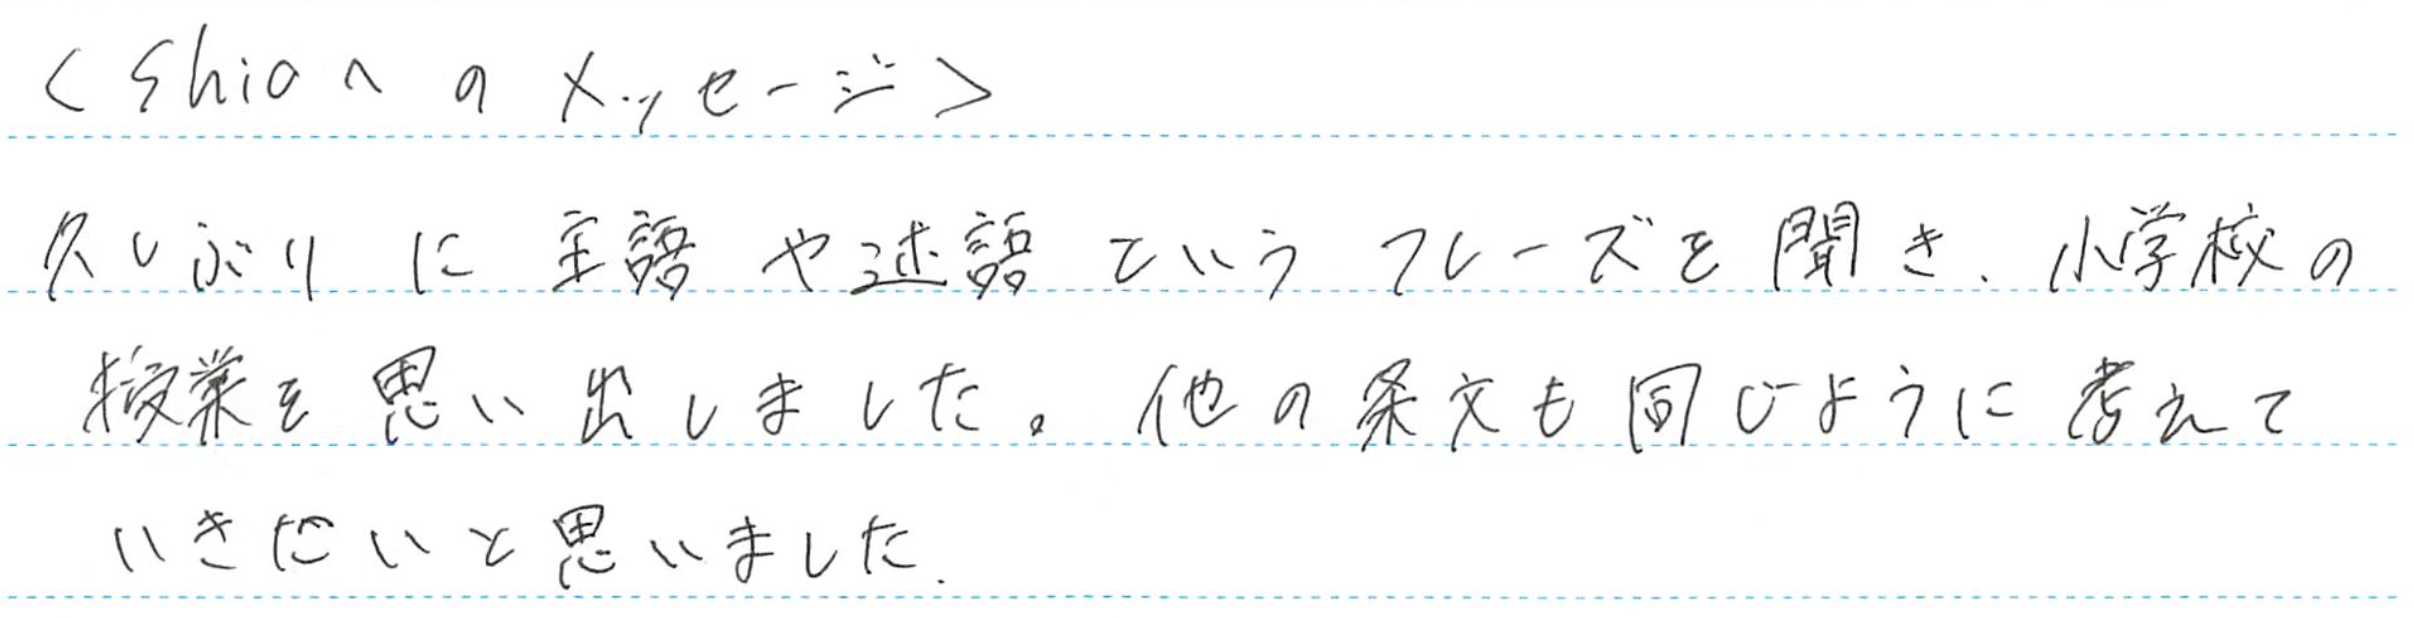 <shioへのメッセージ>
久しぶりに主語や述語というフレーズを聞き、小学校の
授業を思い出しました。他の条文も同じように考えて
いきたいと思いました.